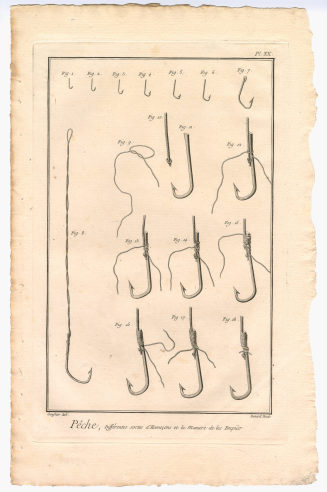 Pl. XX.
Fig. 1. Fig. 2. Fig. 3. Fig. 4. Fig. 5. Fig. 6. Fig. 7
Fig. 10. Fig. 11.
Fig. 9 Fig. 12
Fig. 8 Fig. 13 Fig. 14 Fig. 15
Fig. 16 Fig. 17 Fig. 18
Goussier Del. Benard Fecit
Pêche, Différentes sortes d'Hameçons et la Maniere de les Empiler